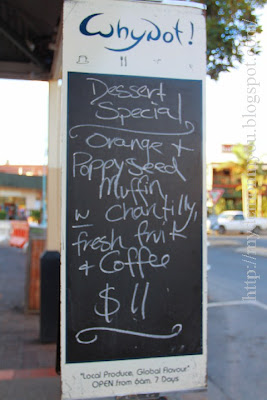 WhyNot!
Dessert
Special
Orange +
Poppyseed
Muffin
w Chantilly,
fresh fruit
+ Coffee
$11
"Local Produce, Global Flavour"
OPEN from 6am. 7 Days